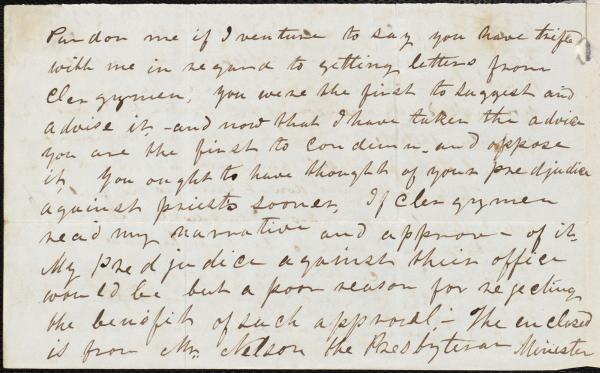 Pardon me if I venture to say you have trifled
with me in regard to getting letters from
Clergymen, you were the first to suggest and
advise it, - and now that I have taken the advice
you are the first to condemn, and oppose
it, You ought to have thought of your predjudice
against priests sooner, If Clergymen
read my narrative and approve - of it,
My predjudice against their office
would be but a poor reason for rejecting
the benefit of such approval, - The enclosed
is from Mr. Nelson the Presbyteran Minister